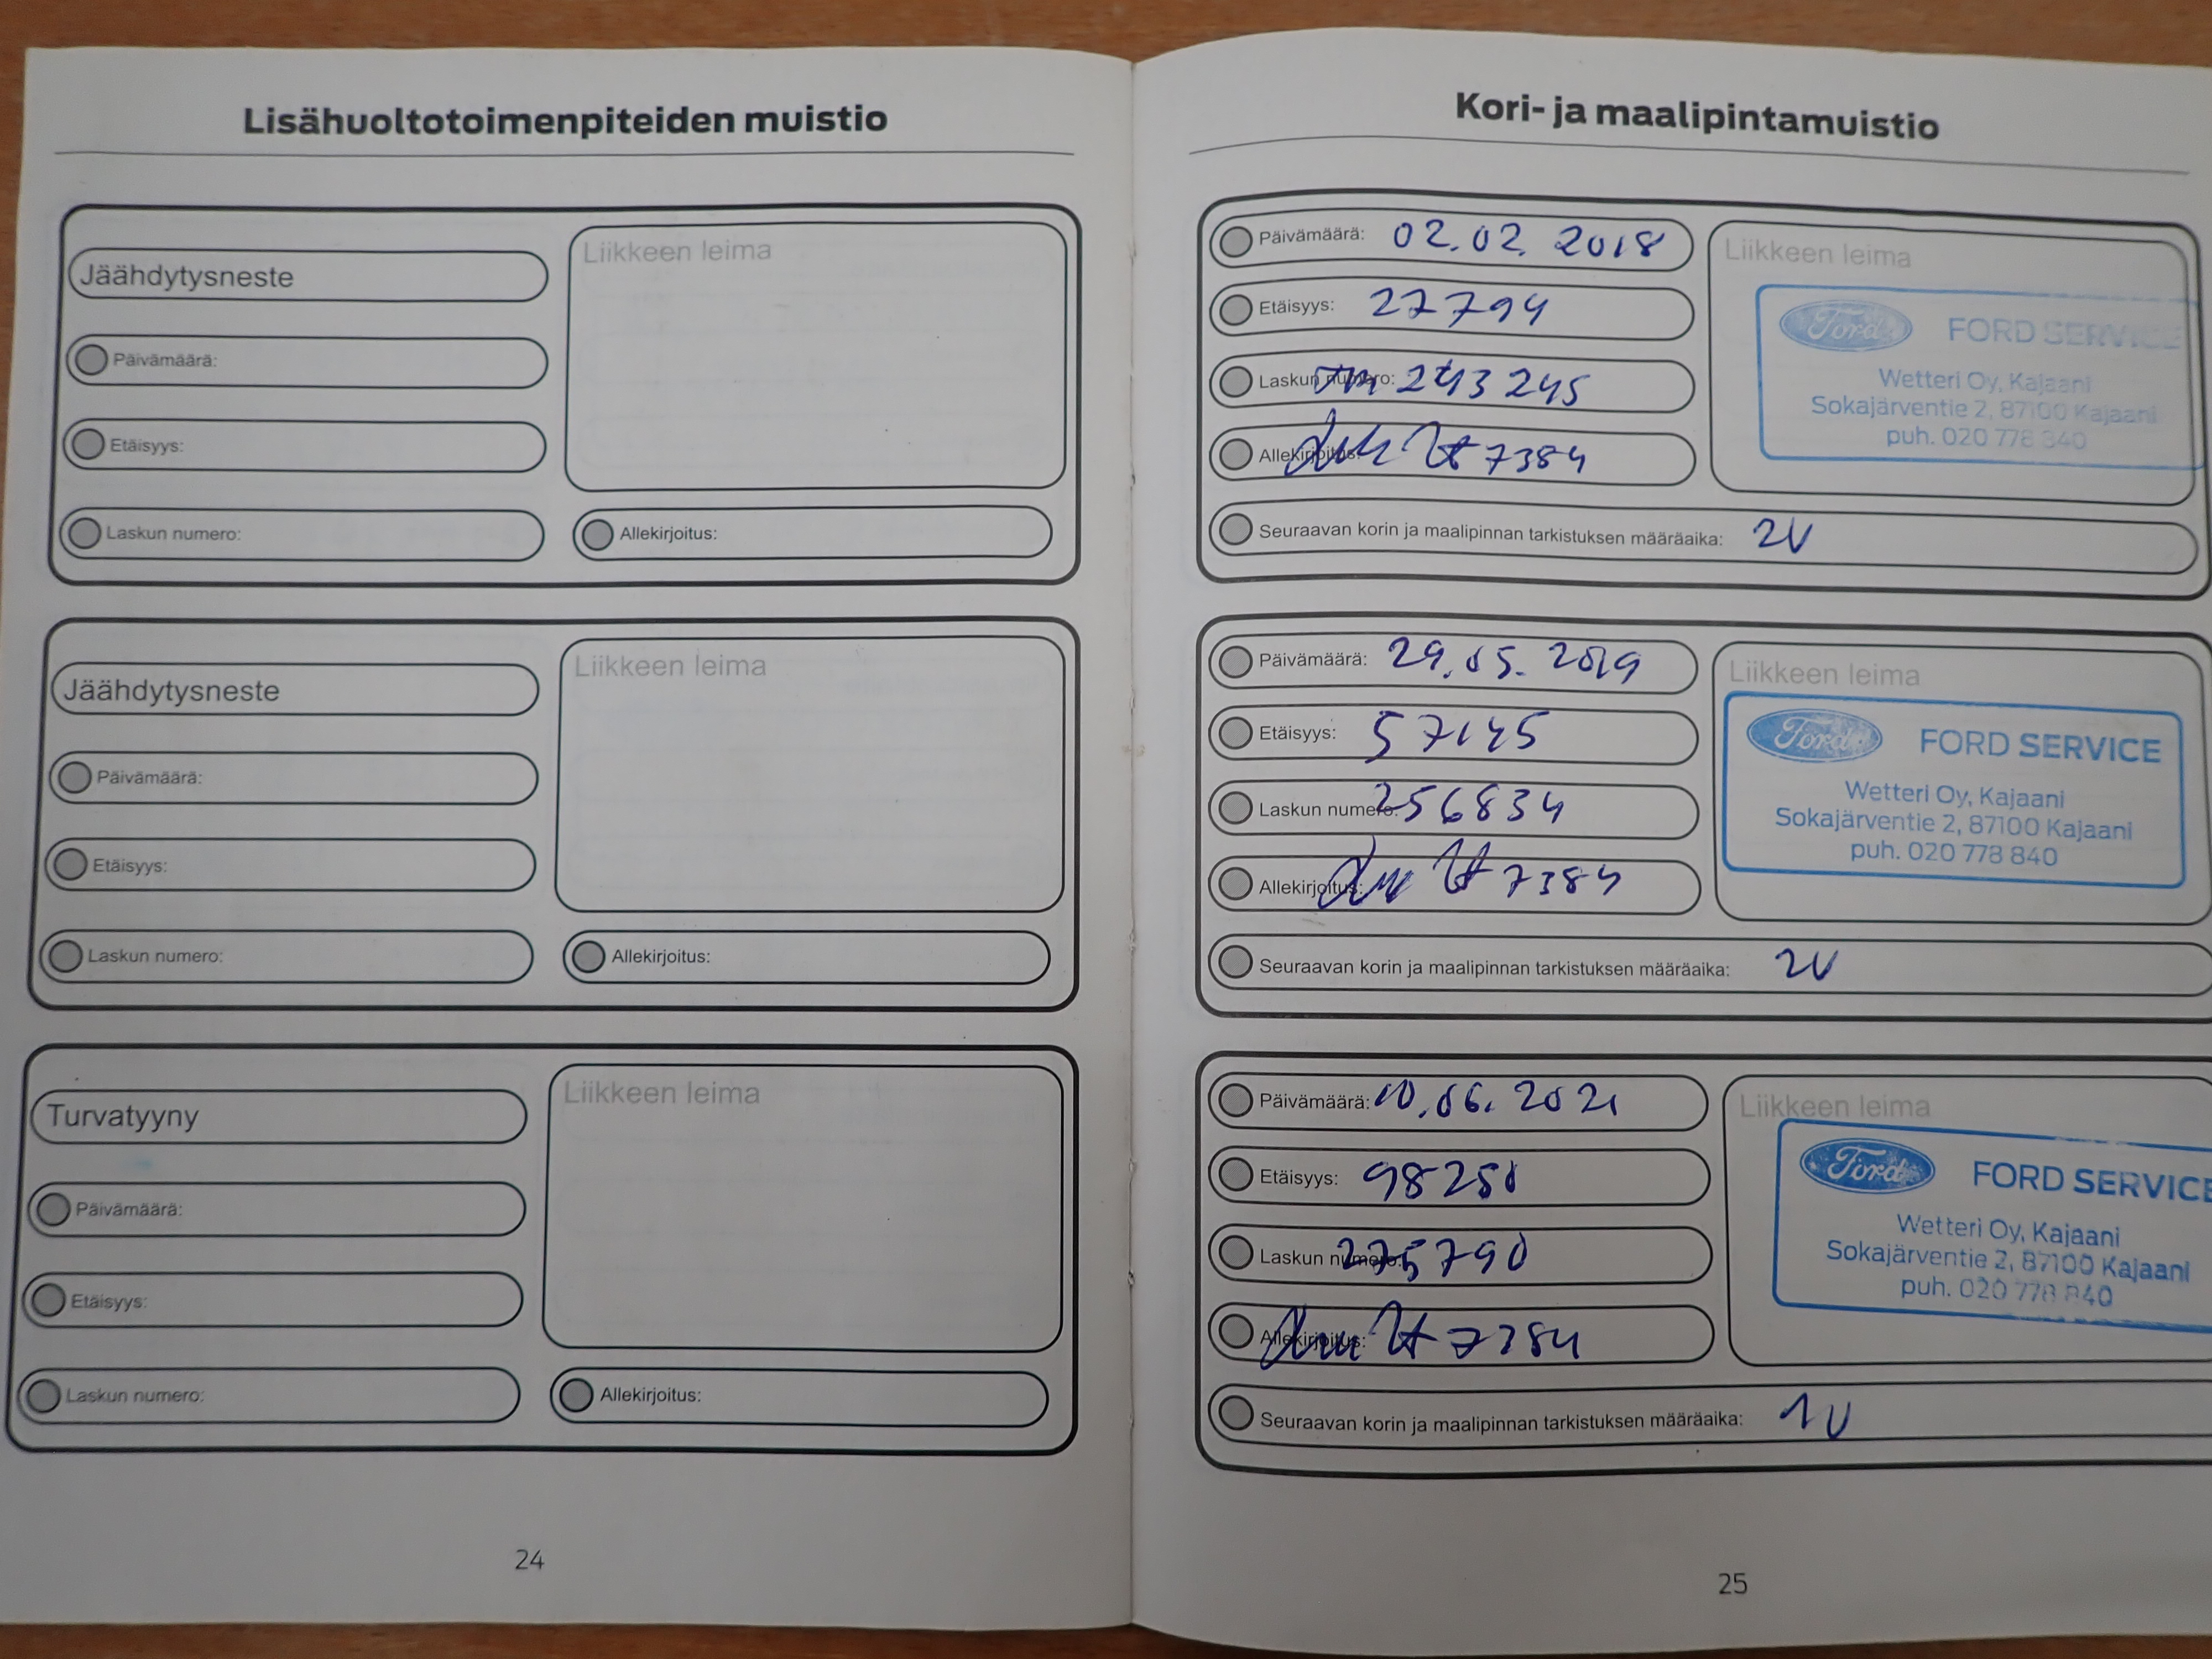 Lisähuoltotoimenpiteiden muistio
Jäähdytysneste
Liikkeen leima
Päivämäärä:
Etäisyys:
Laskun numero:
Allekirjoitus:
Jäähdytysneste
Liikkeen leima
Päivämäärä:
Etäisyys:
Laskun numero:
Allekirjoitus:
Turvatyyny
Liikkeen leima
Päivämäärä:
Etäisyys:
Laskun numero:
Allekirjoitus:
24
Kori- ja maalipintamuistio
Päivämäärä: 02.02.2018
Etäisyys: 27794
Laskun numero: 243245
Allekirjoitus: 7384
Liikkeen leima
Ford FORD SERVICE
Wetteri Oy, Kajaani
Sokajärventie 2, 87100 Kajaani
puh. 020 778 840
Seuraavan korin ja maalipinnan tarkistuksen määräaika: 2V
Päivämäärä: 29.05.2019
Etäisyys: 57145
Laskun numero: 256834
Allekirjoitus: 7384
Liikkeen leima
Ford FORD SERVICE
Wetteri Oy, Kajaani
Sokajärventie 2, 87100 Kajaani
puh. 020 778 840
Seuraavan korin ja maalipinnan tarkistuksen määräaika: 2V
Päivämäärä: 10.06.2021
Etäisyys: 98250
Laskun numero: 275790
Allekirjoitus: 7384
Liikkeen leima
Ford FORD SERVICE
Wetteri Oy, Kajaani
Sokajärventie 2, 87100 Kajaani
puh. 020 778 840
Seuraavan korin ja maalipinnan tarkistuksen määräaika: 1V
25